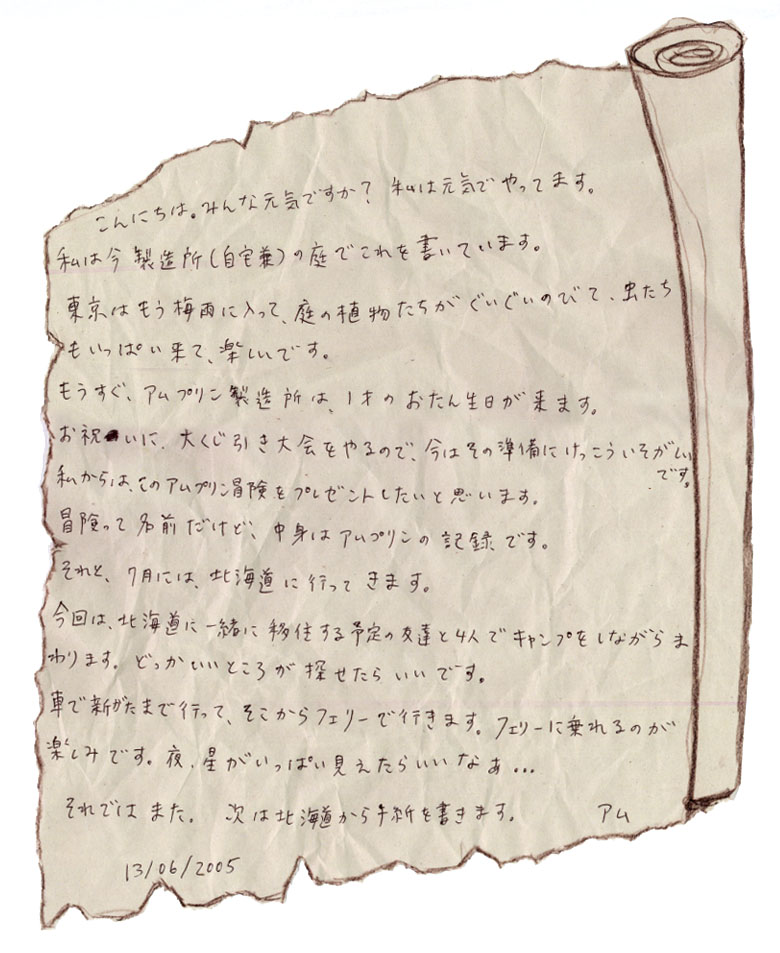 こんにちは。みんな元気ですか? 私は元気でやってます。
私は今製造所(自宅兼)の庭でこれを書いています。
東京はもう梅雨に入って、庭の植物たちがぐいぐいのびて、虫たち
もいっぱい来て、楽しいです。
もうすぐ、アムプリン製造所は、1才のおたん生日が来ます。
お祝いに、大くじ引き大会をやるので、今はその準備にけっこういそがしい
です。
私からは、このアムプリン冒険をプレゼントしたいと思います。
冒険って名前だけど、中身はアムプリンの記録です。
それと、7月には、北海道に行ってきます。
今回は、北海道に一緒に移住する予定の友達と4人でキャンプをしながらま
わります。どっかいいところが探せたらいいです。
車で新がたまで行って、そこからフェリーで行きます。フェリーに乗れるのが
楽しみです。夜、星がいっぱい見えたらいいなぁ...
それではまた。 次は北海道から手紙を書きます。 アム
13/06/2005